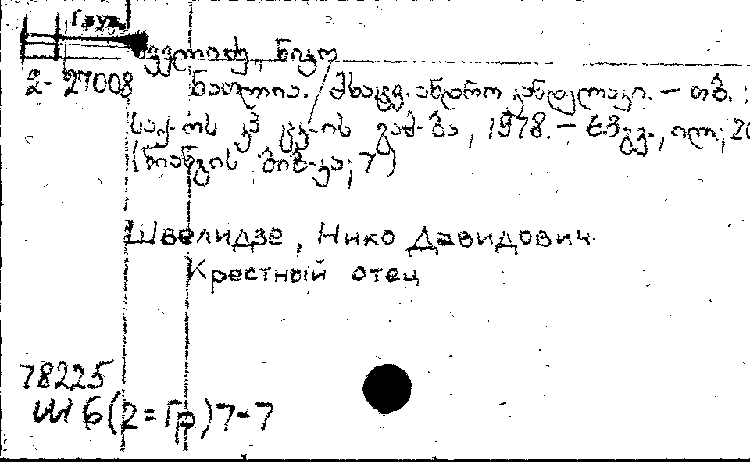 Груз.
შველიძე, ნიკო
2- 27008 ნათლია. / მხატვ. ანდრო კანდელაკი. – თბ. :
საქ-ოს კპ ცკ-ის გამ-ბა, 1978. – 63 გვ., ილ.; 20
(ნიანგის ბიბ-კა; 7)
Швелидзе, Нико Давидович
Крестный отец
78225
Ш6(2=Гр)7-7